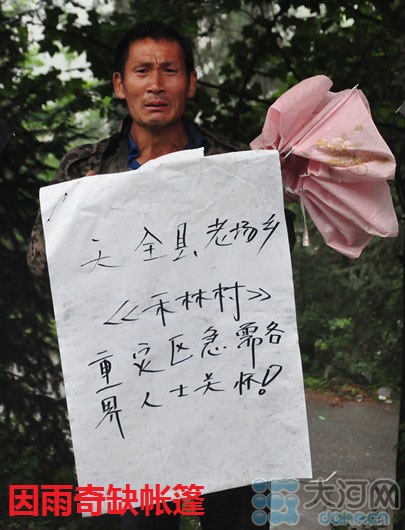 天全县老场乡
《禾林村》
重灾区急需各
界人士关怀!
因雨奇缺帐篷
大河网
dahe.cn